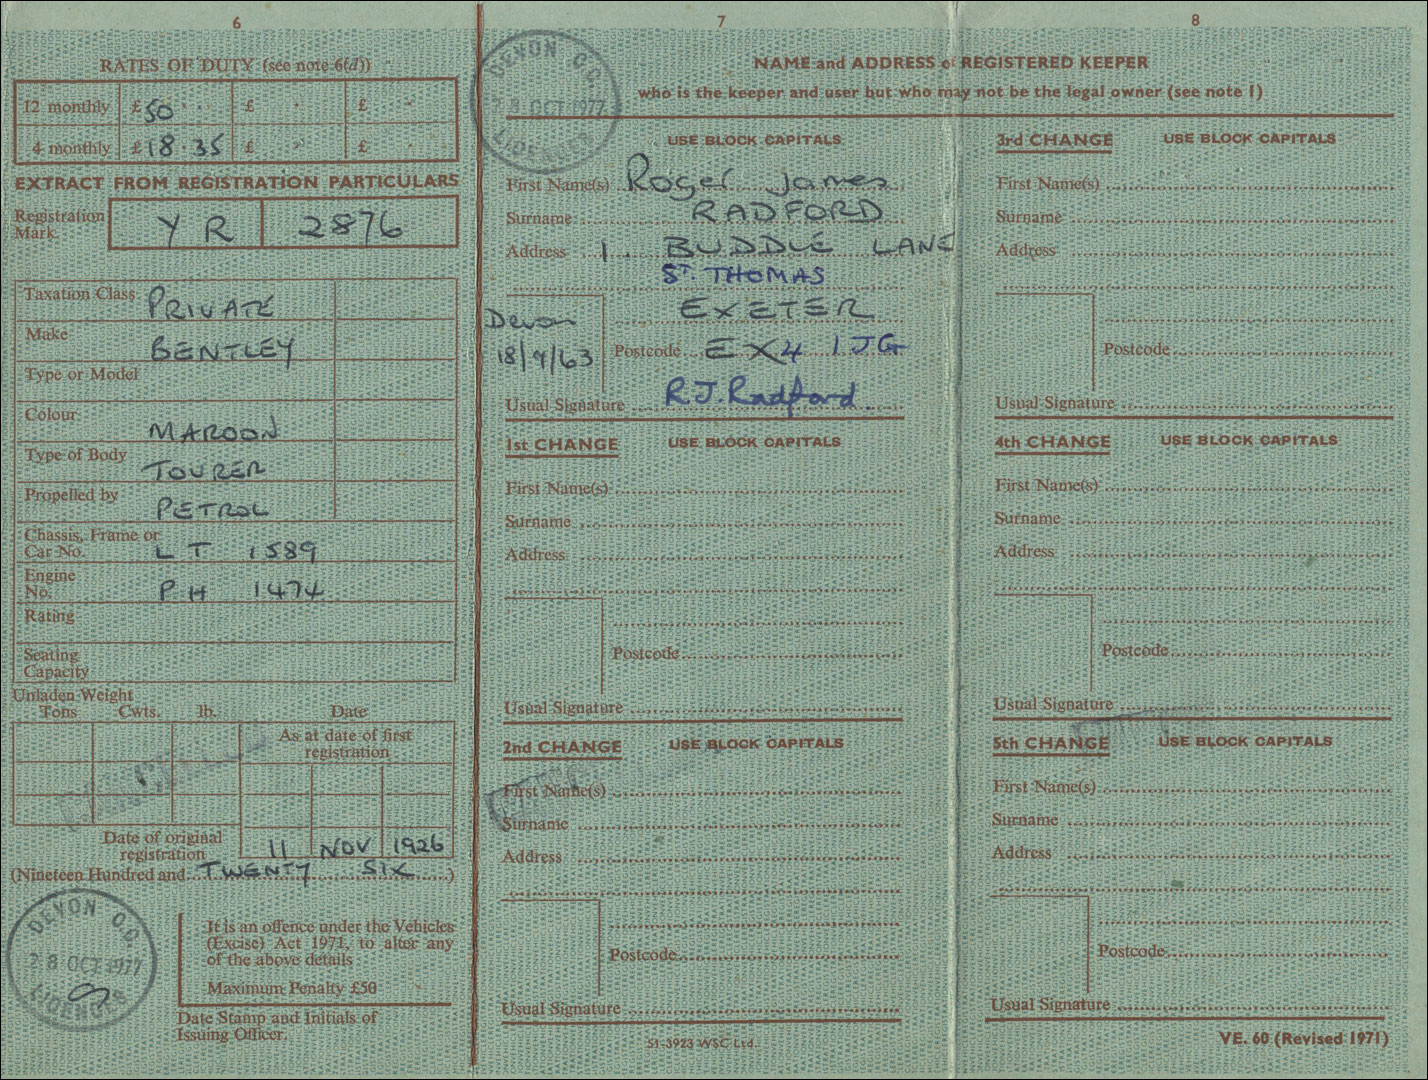 6
RATES OF DUTY (see note 6(d))
12 monthly £50 £ £
4 monthly £18.35 £ £
EXTRACT FROM REGISTRATION PARTICULARS
Registration
Mark
YR 2876
Taxation Class PRIVATE
Make BENTLEY
Type or Model
Colour MAROON
Type of Body TOURER
Propelled by PETROL
Chassis, Frame or
Car No. LT 1589
Engine
No. PH 1474
Rating
Seating
Capacity
Unladen Weight
Tons Cwts. lb. Date
As at date of first
registration
Date of original
registration 11 NOV 1926
(Nineteen Hundred and TWENTY SIX)
DEVON C.C.
28 OCT 1977
LICENCES
It is an offence under the Vehicles
(Excise) Act 1971, to alter any
of the above details
Maximum Penalty £50
Date Stamp and Initials of
Issuing Officer.
7
DEVON C.C.
28 OCT 1977
LICENCES
NAME and ADDRESS of REGISTERED KEEPER
who is the keeper and user but who may not be the legal owner (see note 1)
USE BLOCK CAPITALS
First Name(s) Roger James
Surname RADFORD
Address 1. BUDDLE LANE
ST. THOMAS
EXETER
Devon
18/9/63
Postcode EX4 1JG
Usual Signature R.J.Radford.
1st CHANGE USE BLOCK CAPITALS
First Name(s)
Surname
Address
Postcode
Usual Signature
2nd CHANGE USE BLOCK CAPITALS
First Name(s)
Surname
Address
Postcode
Usual Signature
51-3923 WSC Ltd.
8
3rd CHANGE USE BLOCK CAPITALS
First Name(s)
Surname
Address
Postcode
Usual Signature
4th CHANGE USE BLOCK CAPITALS
First Name(s)
Surname
Address
Postcode
Usual Signature
5th CHANGE USE BLOCK CAPITALS
First Name(s)
Surname
Address
Postcode
Usual Signature
VE. 60 (Revised 1971)